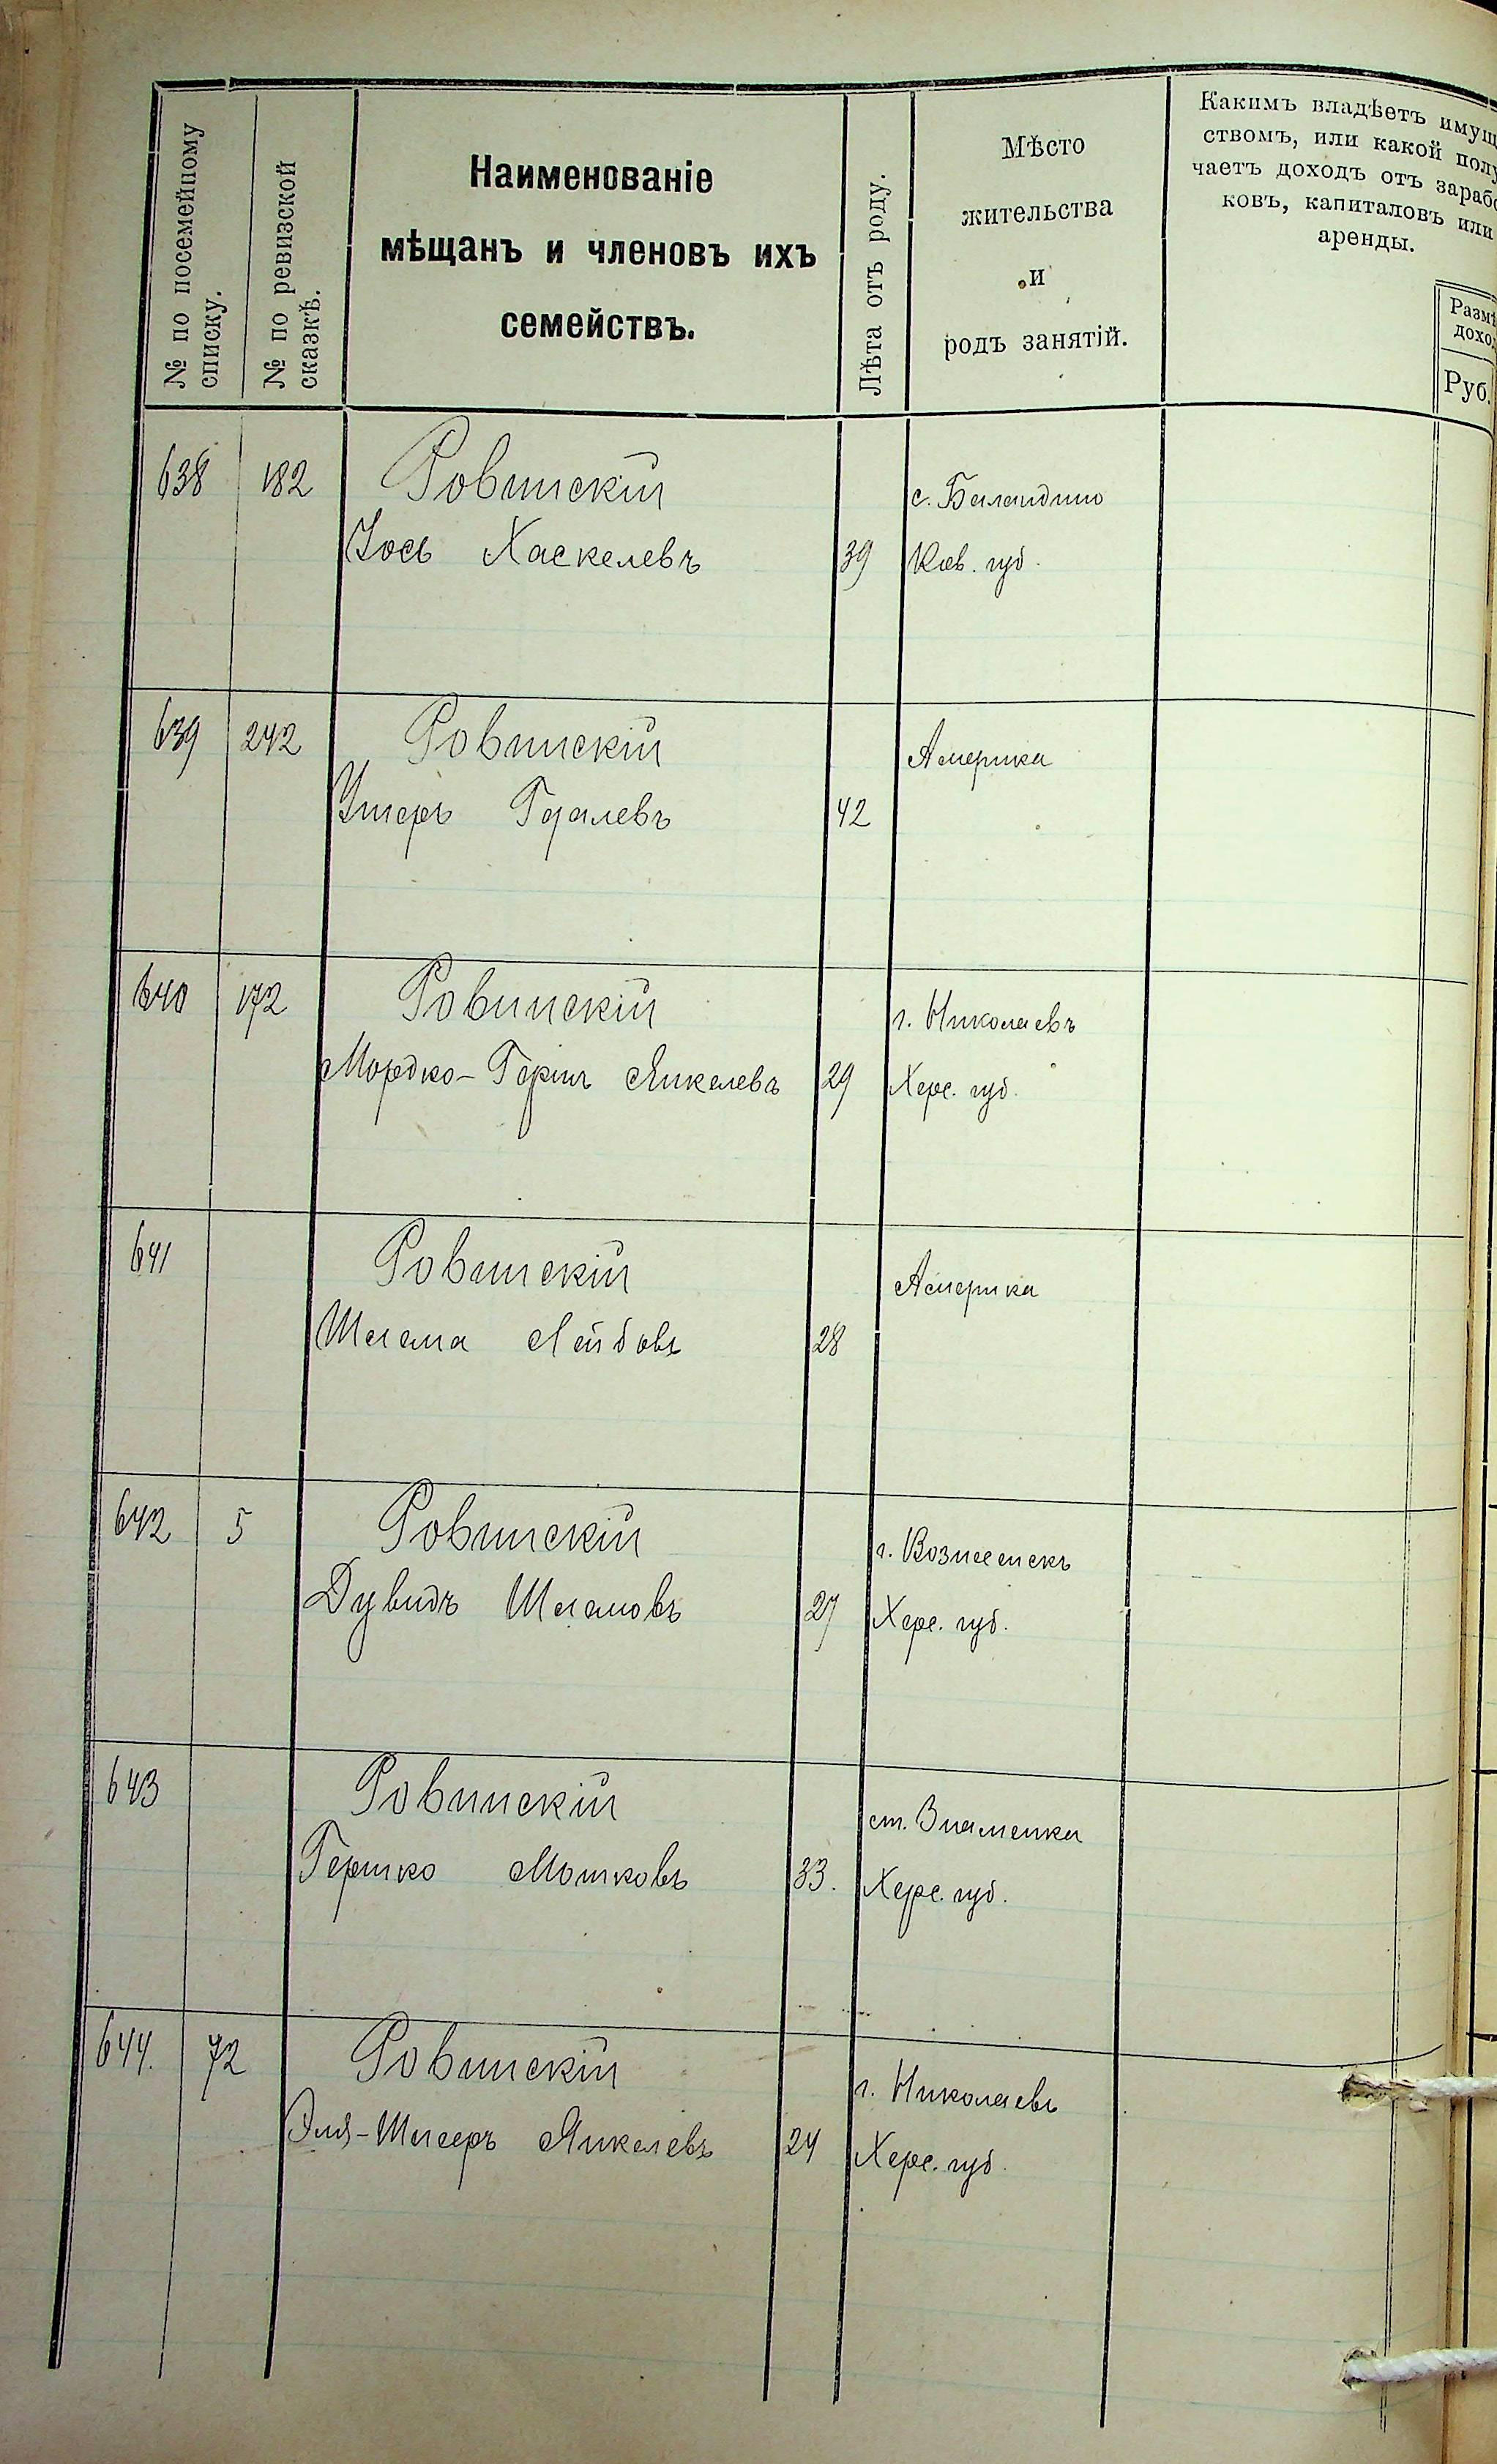 № по посемейному
списку.
№ по ревизской
сказкѣ.
Наименованіе
мѣщанъ и членовъ ихъ
семействъ.
Лѣта отъ роду.
Мѣсто
жительства
и
родъ занятій.
Какимъ владѣетъ имущ
ствомъ, или какой полу
чаетъ доходъ отъ зарабо
ковъ, капиталовъ или
аренды.
Размѣ
дохо
Руб.
638 182 Ровинскій с. Баландино
Іось Хаскелевъ 39 Кіев. губ.
639 242 Ровинскій Америка
Ушеръ Гдалевъ 42
640 172 Ровинскій г. Николаевъ
Мордко-Гершъ Янкелевъ 29 Херс. губ.
641 Ровинскій Америка
Шлема Лейбовъ 28
642 5 Ровинскій г. Вознесенскъ
Дувидъ Шлемовъ 27 Херс. губ.
643 Ровинскій ст. Знаменка
Гершко Мошковъ 33. Херс. губ.
644. 72 Ровинскій г. Николаевъ
Янкелевъ 24 Херс. губ.